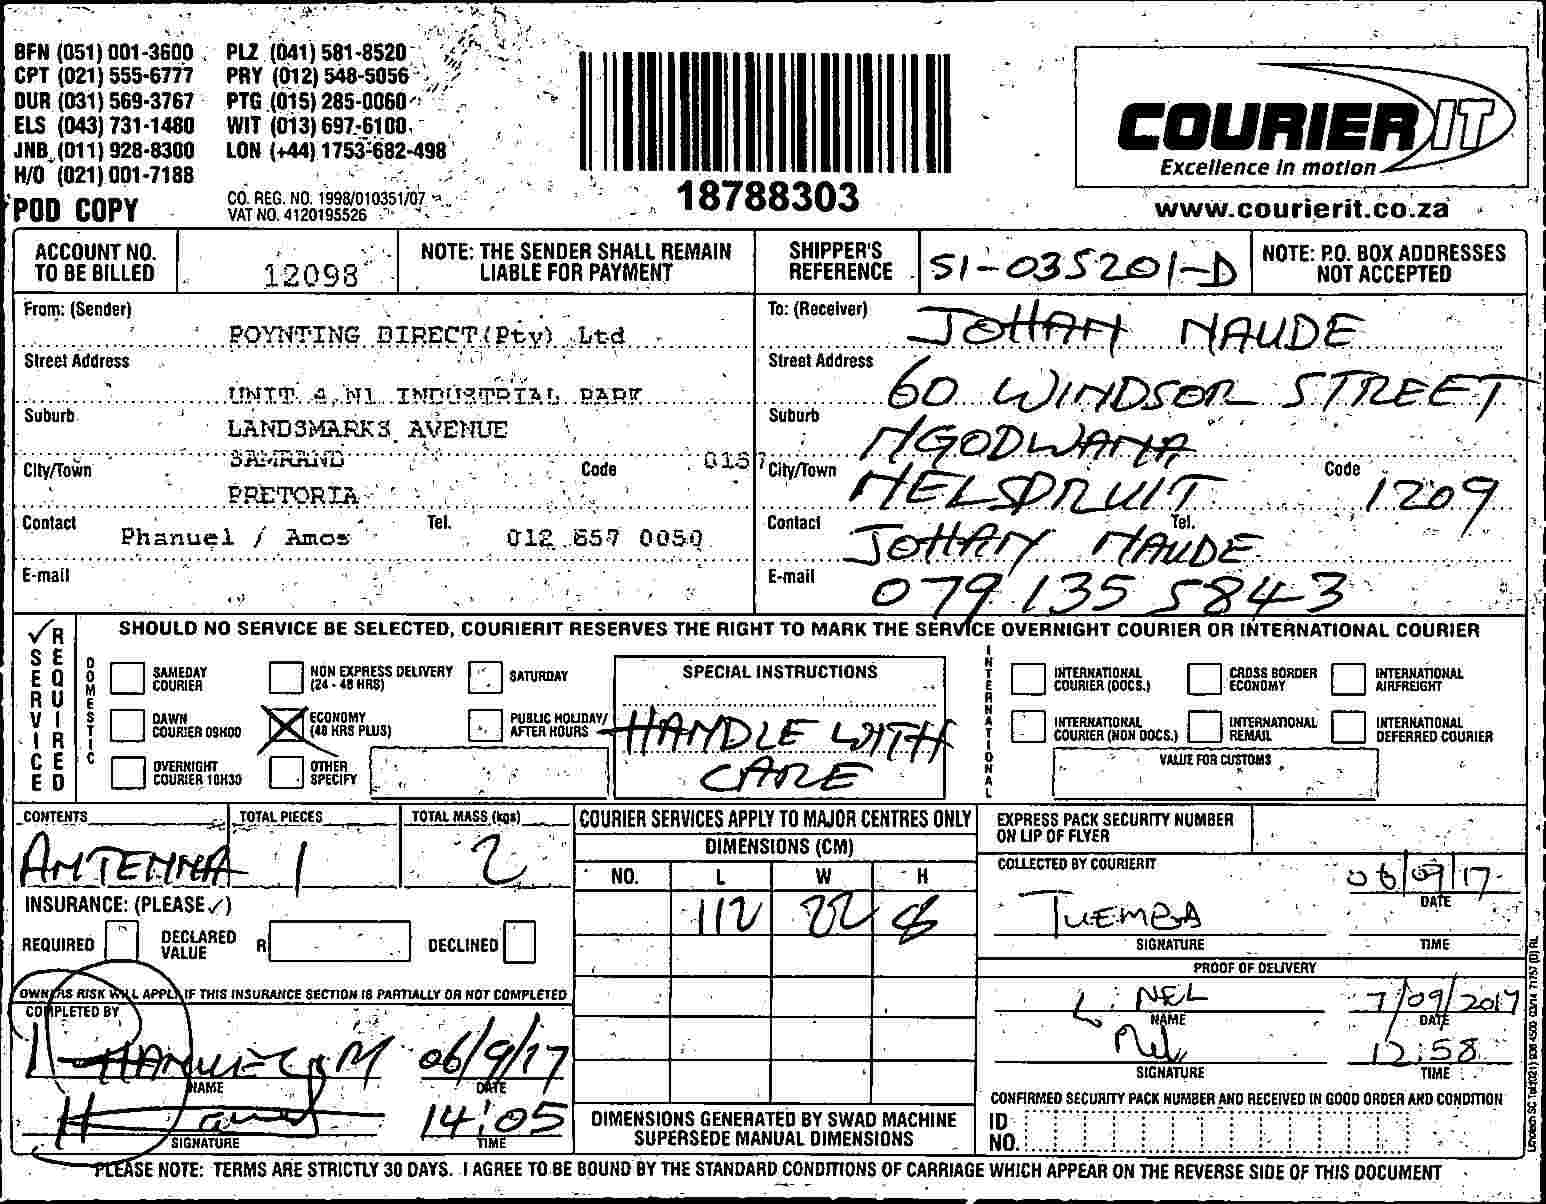 BFN (051) 001-3600 PLZ (041) 581-8520
CPT (021) 555-6777 PRY (012) 548-5056
DUR (031) 569-3767 PTG (015) 285-0060
ELS (043) 731-1480 WIT (013) 697-6100
JNB (011) 928-8300 LON (+44) 1753-682-498
H/O (021) 001-7188
POD COPY
CO. REG. NO. 1998/010351/07
VAT NO. 4120195526
18788303
COURIER IT
Excellence in motion
www.courierit.co.za
ACCOUNT NO. TO BE BILLED 12098
NOTE: THE SENDER SHALL REMAIN LIABLE FOR PAYMENT
SHIPPER'S REFERENCE SI-035201-D
NOTE: P.O. BOX ADDRESSES NOT ACCEPTED
From: (Sender) POYNTING DIRECT(Pty) Ltd
Street Address UNIT 4, N1 INDUSTRIAL PARK
Suburb LANDSMARKS AVENUE
SAMRAND
City/Town PRETORIA Code 0157
Contact Phanuel / Amos Tel. 012 657 0050
E-mail
To: (Receiver) JOHAN NAUDE
Street Address 60 WINDSOR STREET
Suburb NGODWANA
City/Town NELSPRUIT Code 1209
Contact JOHAN NAUDE Tel.
E-mail 079 135 5843
SERVICE REQUIRED
SHOULD NO SERVICE BE SELECTED, COURIERIT RESERVES THE RIGHT TO MARK THE SERVICE OVERNIGHT COURIER OR INTERNATIONAL COURIER
DOMESTIC
SAMEDAY COURIER
NON EXPRESS DELIVERY (24 - 48 HRS)
SATURDAY
DAWN COURIER 09H00
ECONOMY (48 HRS PLUS)
PUBLIC HOLIDAY/ AFTER HOURS
OVERNIGHT COURIER 10H30
OTHER SPECIFY
SPECIAL INSTRUCTIONS
HANDLE WITH
CARE
INTERNATIONAL
INTERNATIONAL COURIER (DOCS.)
CROSS BORDER ECONOMY
INTERNATIONAL AIRFREIGHT
INTERNATIONAL COURIER (NON DOCS.)
INTERNATIONAL REMAIL
INTERNATIONAL DEFERRED COURIER
VALUE FOR CUSTOMS
CONTENTS ANTENNA
TOTAL PIECES 1
TOTAL MASS (kgs) 2
INSURANCE: (PLEASE ✓)
REQUIRED DECLARED VALUE R DECLINED
OWNERS RISK WILL APPLY IF THIS INSURANCE SECTION IS PARTIALLY OR NOT COMPLETED
COMPLETED BY
06/9/17
NAME DATE
14:05
SIGNATURE TIME
COURIER SERVICES APPLY TO MAJOR CENTRES ONLY
DIMENSIONS (CM)
NO. L W H
112 22 8
DIMENSIONS GENERATED BY SWAD MACHINE
SUPERSEDE MANUAL DIMENSIONS
EXPRESS PACK SECURITY NUMBER
ON LIP OF FLYER
COLLECTED BY COURIERIT
06/09/17
DATE
SIGNATURE TIME
PROOF OF DELIVERY
L. NEL 7/09/2017
NAME DATE
12:58
SIGNATURE TIME
CONFIRMED SECURITY PACK NUMBER AND RECEIVED IN GOOD ORDER AND CONDITION
ID NO.
PLEASE NOTE: TERMS ARE STRICTLY 30 DAYS. I AGREE TO BE BOUND BY THE STANDARD CONDITIONS OF CARRIAGE WHICH APPEAR ON THE REVERSE SIDE OF THIS DOCUMENT